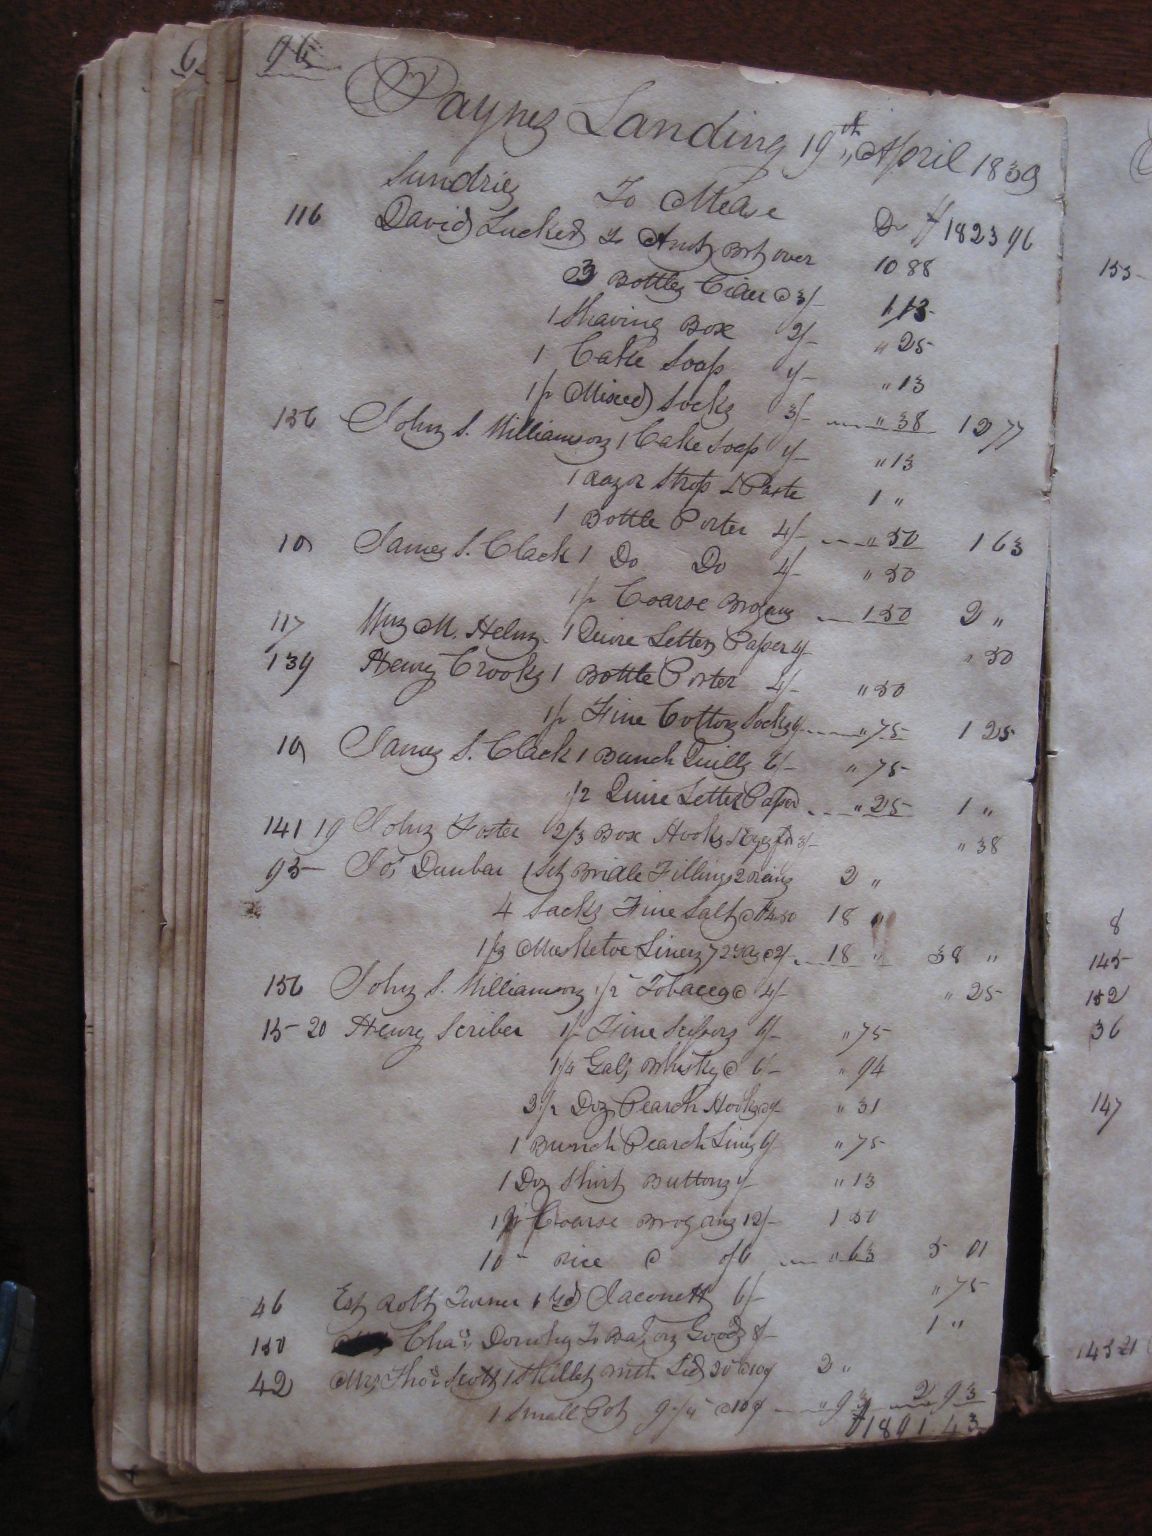 96
Paynes Landing 19th April 1839
Sundries To Mdse Dr $1823 96
116 David Lucket To Amt Brt over 10 88
3 Bottles Cider @ 3/- 1 13
1 Shaving Box 2/- " 25
1 Cake Soap 1/- " 13
1 pr Mixed Socks 3/- " 38 12 77
156 John S. Williamson 1 Cake Soap 1/- " 13
1 Razor Strop & Paste 1 "
1 Bottle Porter 4/- " 50 1 63
10 James S. Clack 1 Do Do 4/- " 50
1 pr Coarse Brogans 1 50 2 "
117 Wm M. Helm 1 Quire Letter Paper 4/- " 50
139 Henry Crooks 1 Bottle Porter 4/- " 50
1 pr Fine Cotton Socks 6/- " 75 1 25
10 James S. Clack 1 Bunch Quills 6/- " 75
1/2 Quire Letter Paper " 25 1 "
141 19 John Foster 2/3 Box Hooks & Eyes 3/- " 38
95 Jos Dunbar 1 Set Bridle Fillings 2 Reins 2 "
4 Sacks Fine Salt @ $4.50 18 "
Musketoe Linen 72 Yds @ 2/- 18 " 38 "
156 John S. Williamson 1/2 Tobacco @ 4/- " 25
15 20 Henry Scriber 1 pr Fine Scissors 6/- " 75
Gals Whisky @ 6/- " 94
Doz Pearch Hooks " 31
1 Bunch Pearch Lines 6/- " 75
1 Doz Shirt Buttons 1/- " 13
1 pr Coarse Brogans 12/- 1 50
10 " Rice @ " 63 5 01
46 Est Robt Turner 1 Yd Jaconett 6/- " 75
150 Chas Dorothy To Bal on Goods 8/- 1 "
42 Mrs Thos Scott 1 Skillet with Lid 20 @ 10¢ 2 "
1 Small Pot 9 1/4 @ 10¢ " 93 2 93
$1891.43
6
155
8
145
152
36
147
145 21